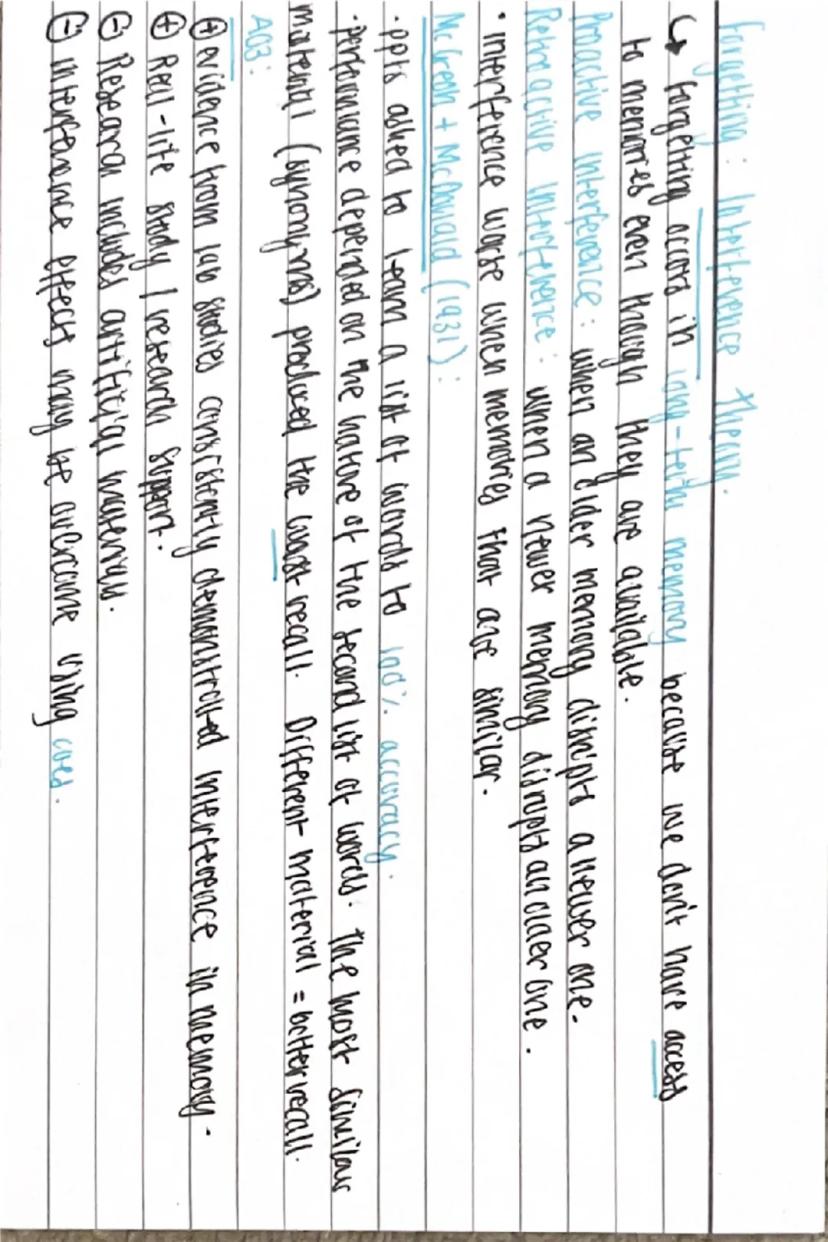 Forgetting: Interference theory.
↳ forgetting occurs in long-term memory because we don't have access
to memories even though they are available.
Proactive Interference: when an older memory disrupts a newer one.
Retroactive Interference: when a newer memory disrupts an older one.
• interference worse when memories that are similar.
McGeoh + McDonald (1931):
• ppts asked to learn a list of words to 100% accuracy.
• performance depended on the nature of the second list of words. The most similar
material (synonyms) produced the worst recall. Different material = better recall.
AO3:
⊕ evidence from lab studies consistently demonstrated interference in memory.
⊕ Real-life study / research support.
⊖ Research includes artificial materials.
⊖ interference effect may be overcome using cues.